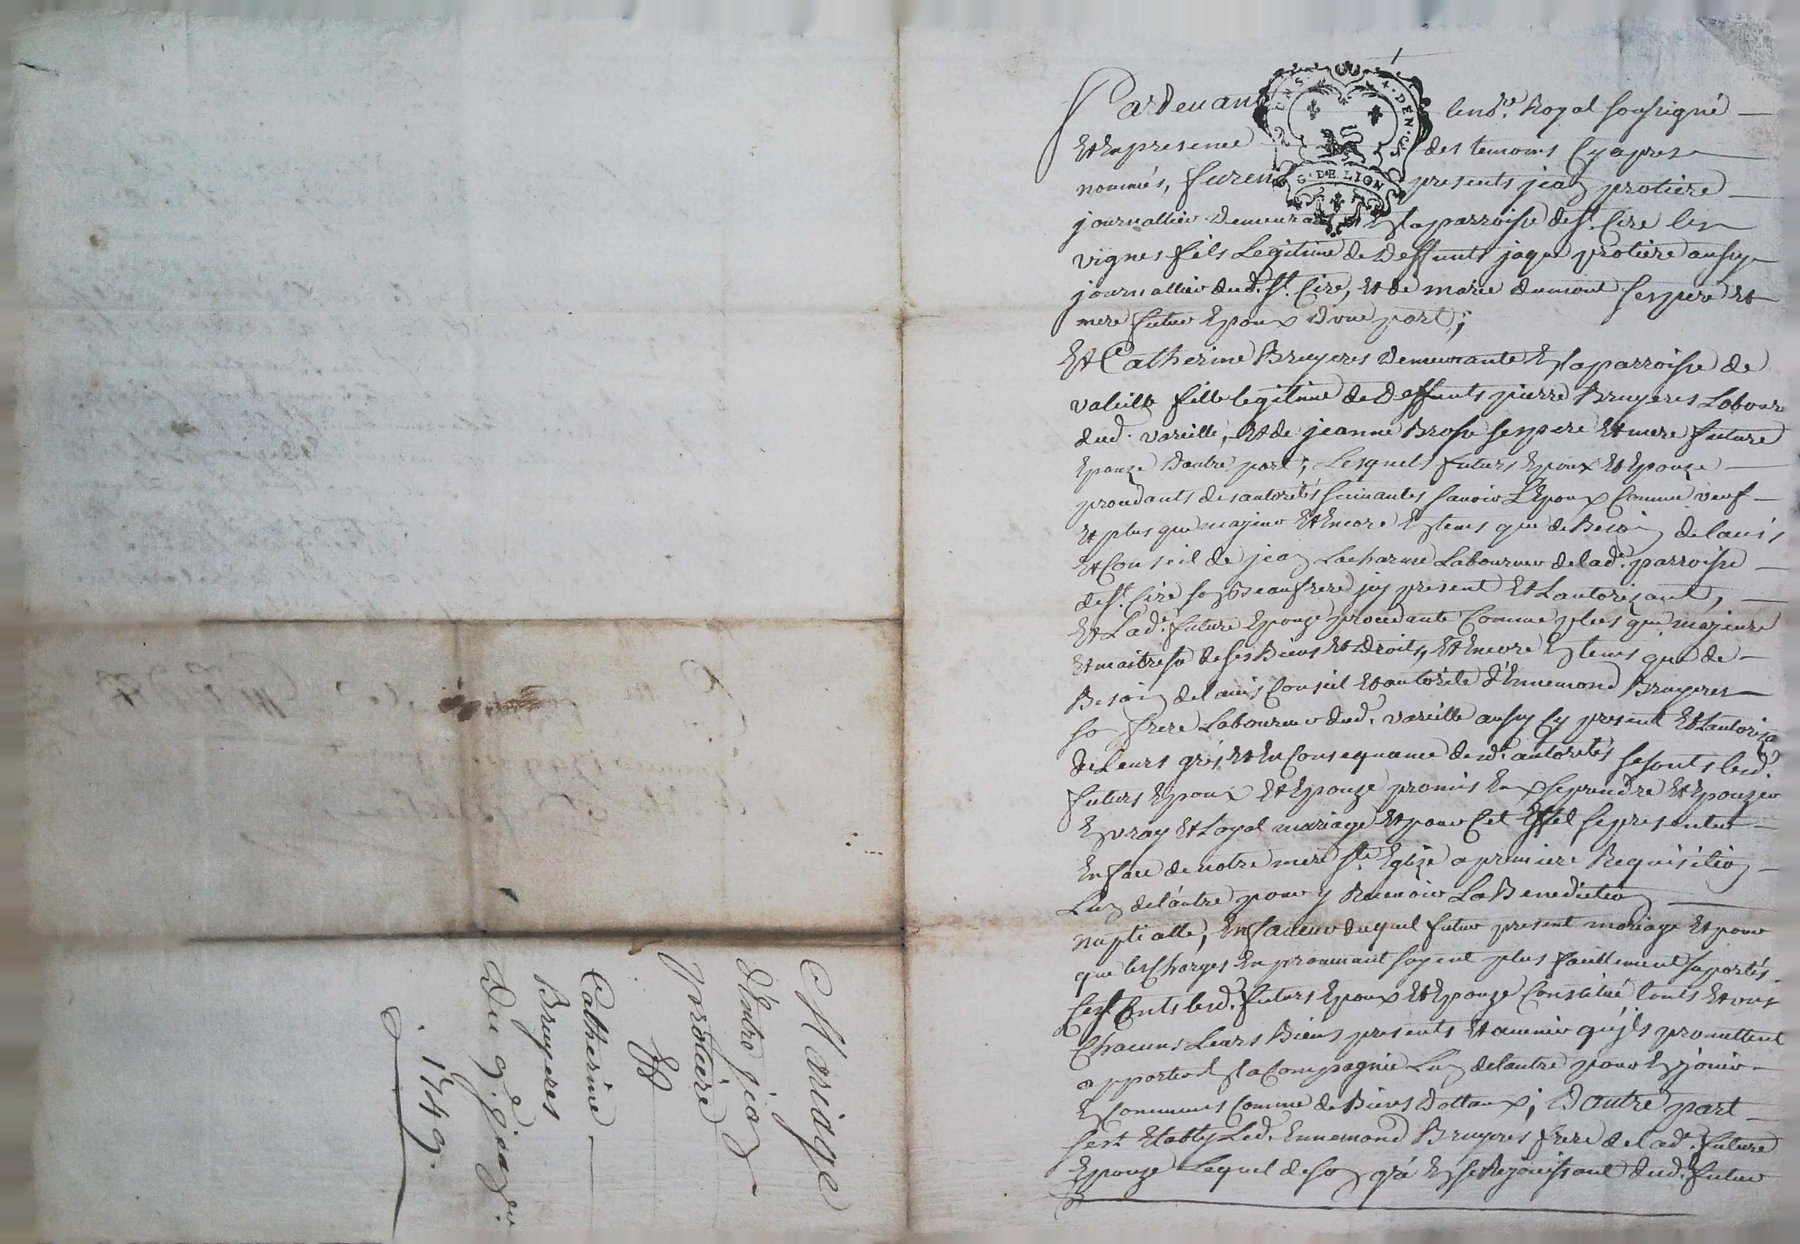 Mariage
d'Entre jean
protiere
Et
Catherine
Bruyeres
Du 7e janv.er
1749.
Pardevant le no.re Royal soussigné
Et En presence des temoins Cy apres
nommés, furent presents jean protiere
journallier demeurant En la parroisse de st. Cire les
vignes fils Legitime de Deffunts jaque protiere aussy
journallier dud. st. Cire, Et de marie dumont ses pere Et
mere futur Epoux D'une part;
Et Catherine Bruyeres Demeurante En la parroisse de
valeille fille legitime de Deffunts pierre Bruyeres Labour
dud. valeille, Et de jeanne Brosse ses pere Et mere future
Epouze D'autre part; Lesquels futurs Epoux Et Epouze
procedants des autorités suivantes savoir L'Epoux Comme veuf
Et plus que majeur Et Encore En tems que de Besoin de l'avis
Et Conseil de jean Lacharme Laboureur de lad. parroisse
de st. Cire son Beaufrere icy present Et L'autorizant,
Et Lad. future Epouze procedante Comme plus que majeure
Et maitresse de ses Biens Et Droits, Et Encore En tems que de
Besoin de l'avis Conseil Et autorité d'Ennemond Bruyeres
son frere Laboureur dud. valeille aussy Cy present Et L'autoriza
de Leurs grés Et En Consequance desd. autorités se sont lesd.
futurs Epoux Et Epouze promis Eux se prendre Et Epouzer
En vray Et Loyal mariage Et pour Cet Effet se presenter
En face de notre mere ste. Eglize a premiere Requisition
L'un de l'autre pour y Recevoir La Benediction
nuptialle, En faveur duquel futur present mariage Et pour
que les Charges En provenant soyent plus facillement suportés
se sont lesd. futurs Epoux Et Epouze Constitué touts Et uns
Chacuns Leurs Biens presents Et avenir qu'ils promettent
apporter En la Compagnie L'un de l'autre pour En jouir
En Communs Comme de Biens Dottaux; D'autre part
s'est Etably Led. Ennemond Bruyeres frere de lad. future
Epouze Lequel de son gré En se Rejouissant dud. futur
2 SOLS 4 DEN.
G. DE LION